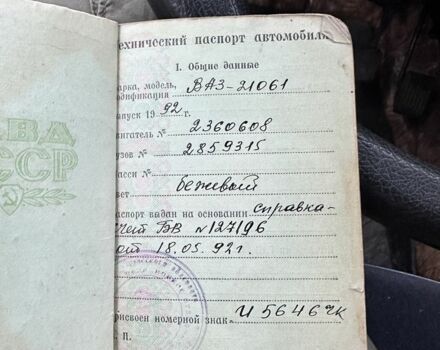 ВД
ССР
ехнический паспорт автомобиля
I. Общие данные
арка, модель, ВАЗ-21061
одификация
ыпуск 1992 г.
вигатель № 2360608
узов № 2859315
асси №
вет бежевый
аспорт выдан на основании справка-
счет БВ №127196
от 18.05.92г.
рисвоен номерной знак И 5646 ЧК
. П.